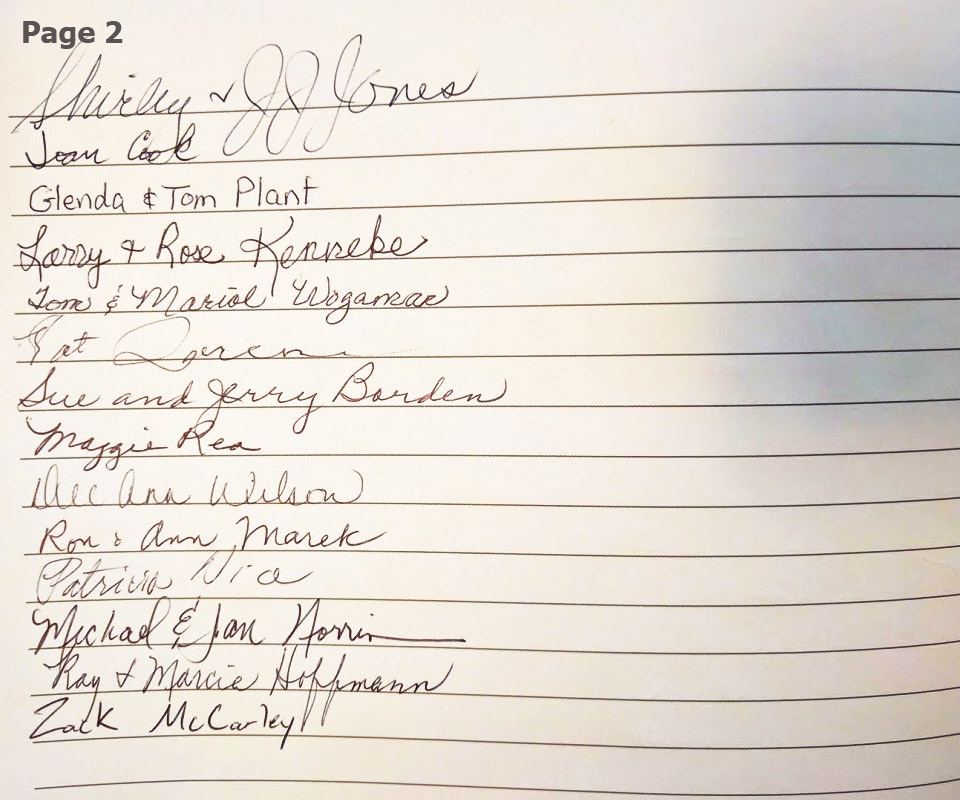 Page 2
Shirley & JJ Jones
Jean Cook
Glenda & Tom Plant
Larry & Rose Kenneke
Tom & Mariol Wogaman
Pat
Sue and Jerry Borden
Maggie Rea
Dee Ann Wilson
Ron & Ann Marek
Patricia Vice
Michael & Jan Norris
Ray & Marcie Hoffmann
Zack McCarley